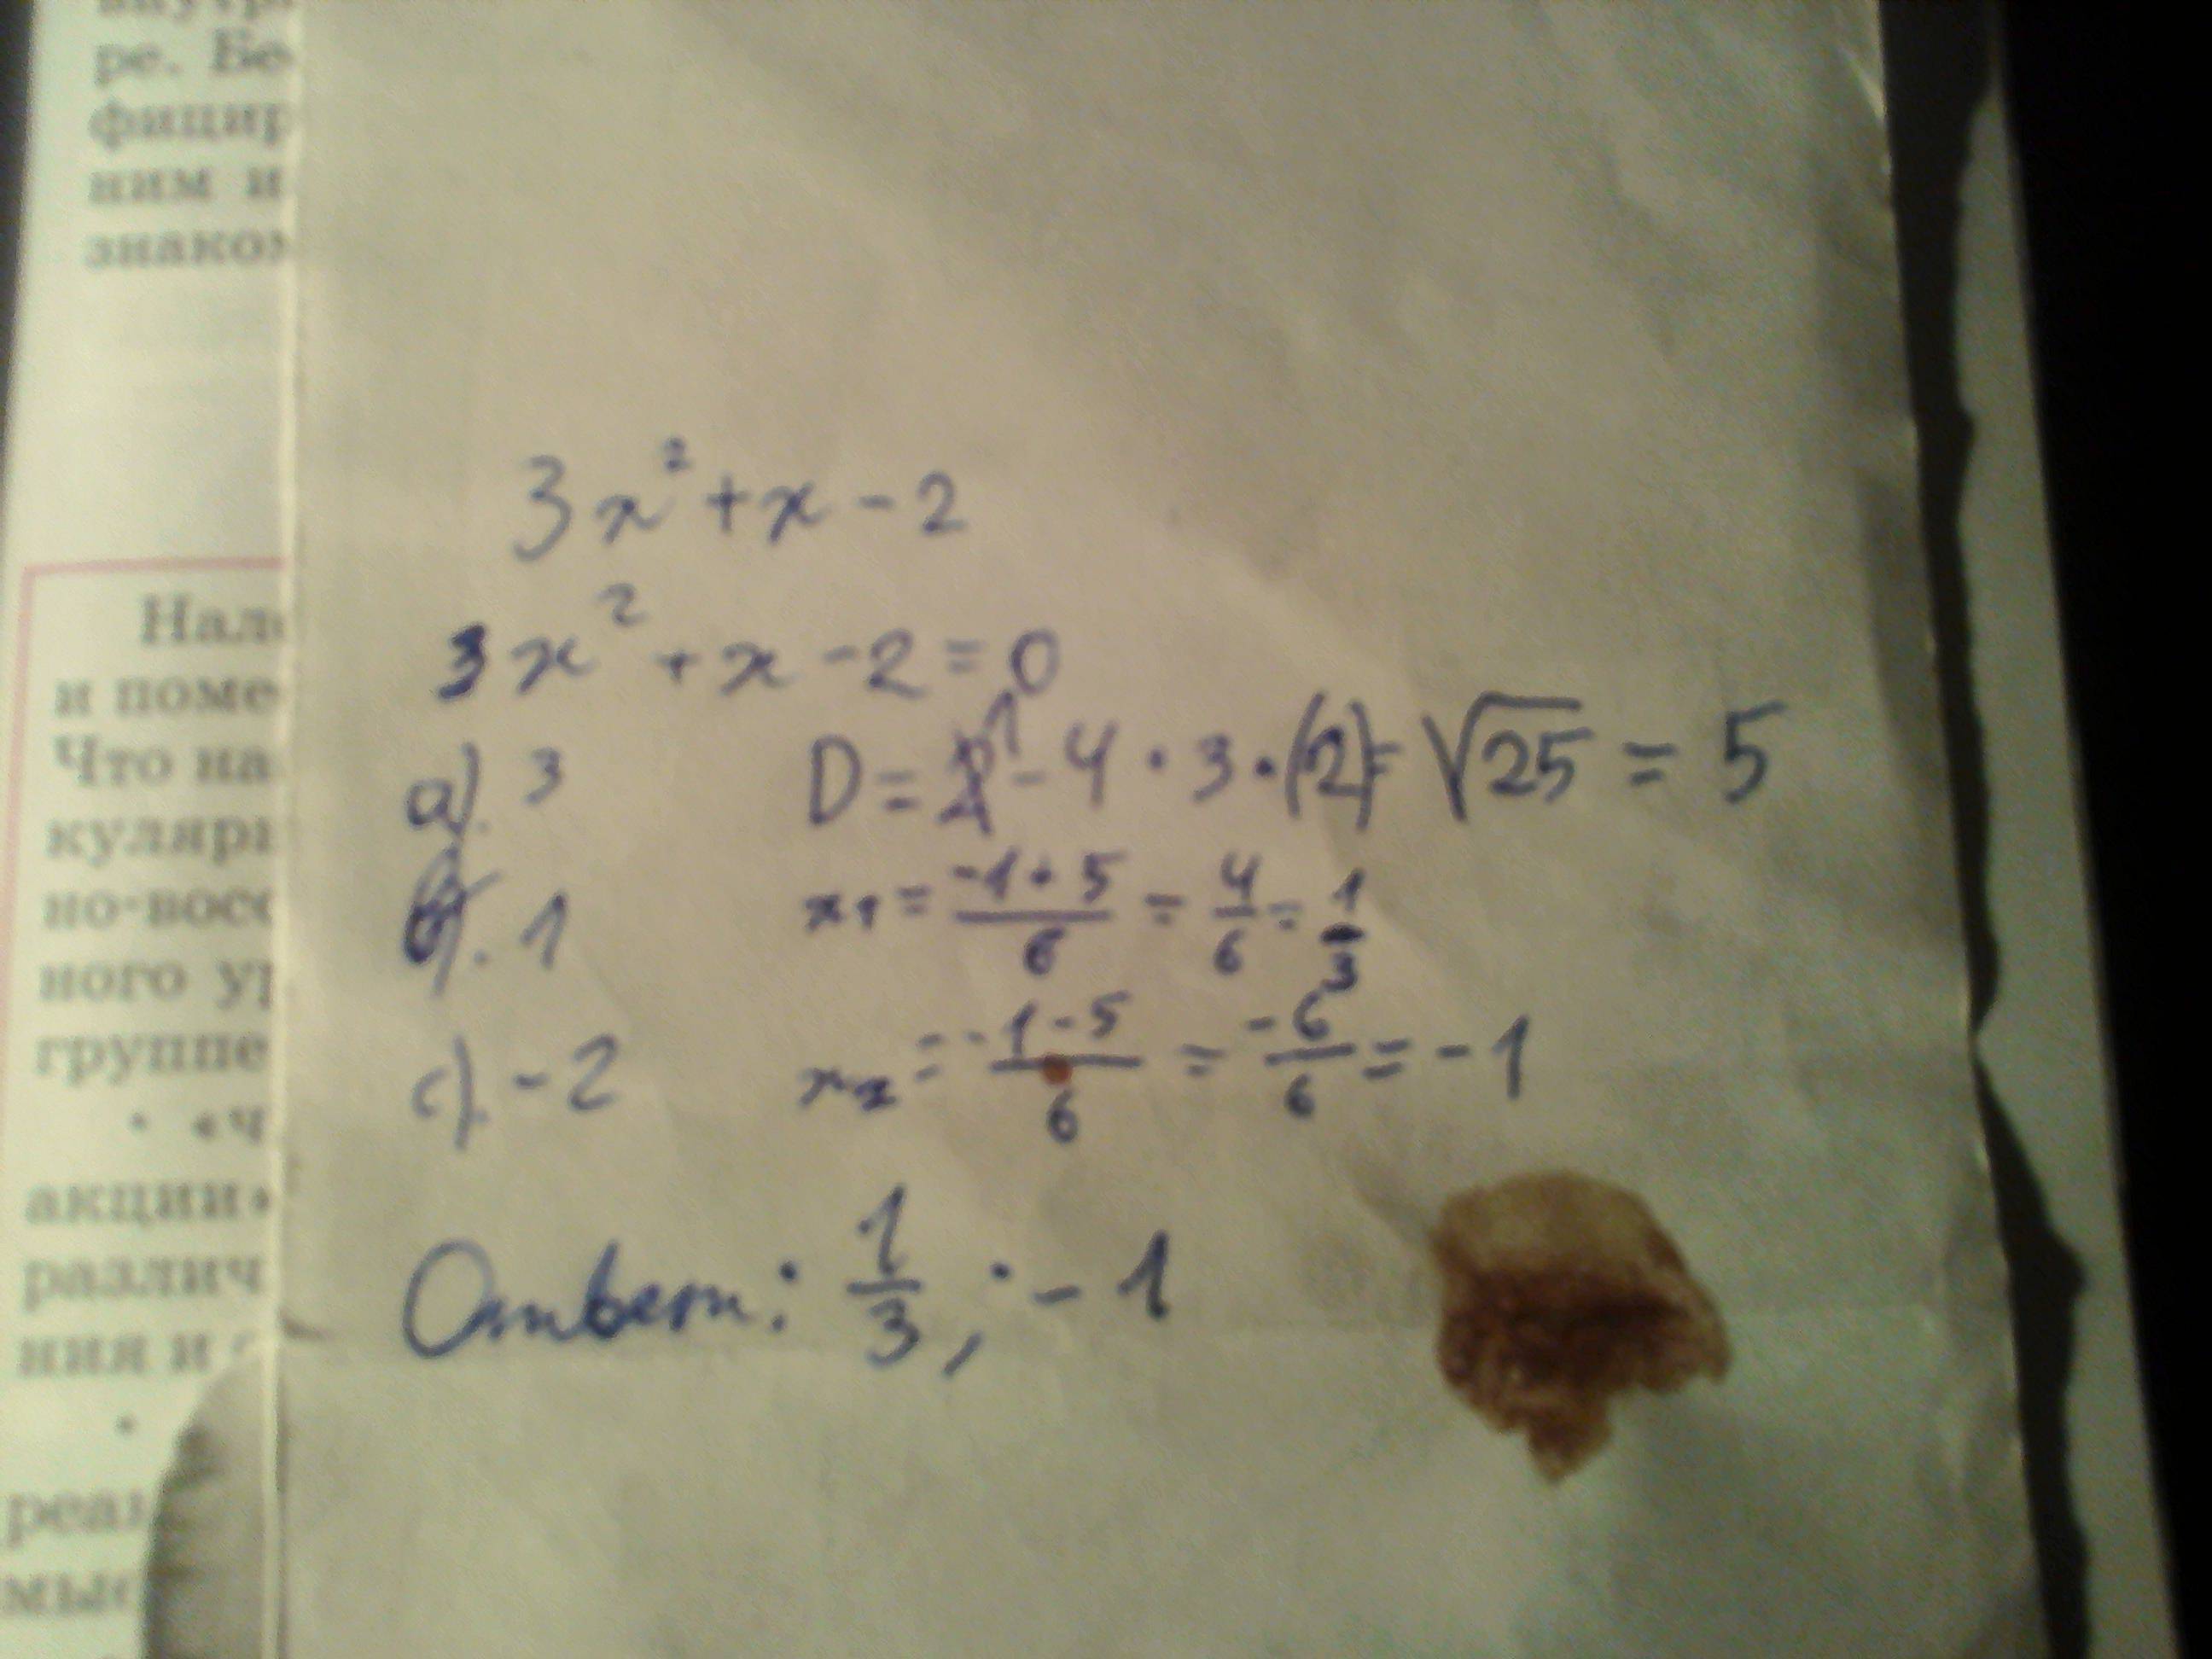 внутр
ре. Бе
фицир
ним и
знаком
Нал
и поме
Что на
куляр
но-восс
ного ур
группе
• «ч
акции»
различ
ния и
•
реа
мыс
3x² + x - 2
3x² + x - 2 = 0
a). 3 D = 1 - 4 · 3 · (2) = √25 = 5
в). 1 x₁ = -1+5/6 = 4/6 = 1/3
c). -2 x₂ = -1-5/6 = -6/6 = -1
Ответ: 1/3; -1